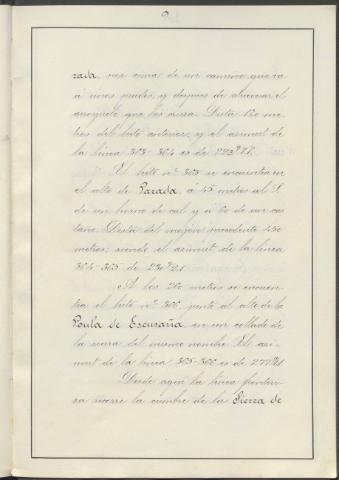 zada, por cima de un camino que va
á unos prados, y despues de atravesar el
arroyuelo que los riega. Dista 150 me-
tros del hito anterior, y el azimut de
la línea 363-364 es de
El hito nº 365 se encuentra en
el alto de Parada, á 45 metros al S.
de un horno de cal y á 60 de un cas-
taño. Dista del mojón precedente 450
metros; siendo el azimut de la línea
364-365 de 230º21.
A los 260 metros se encuen-
tra el hito nº 366, junto al alto de la
Poula de Escusaña en un collado de
la sierra del mismo nombre. El azi-
mut de la línea 365-366 es de
Desde aquí la línea fronteri-
za recorre la cumbre de la Sierra de